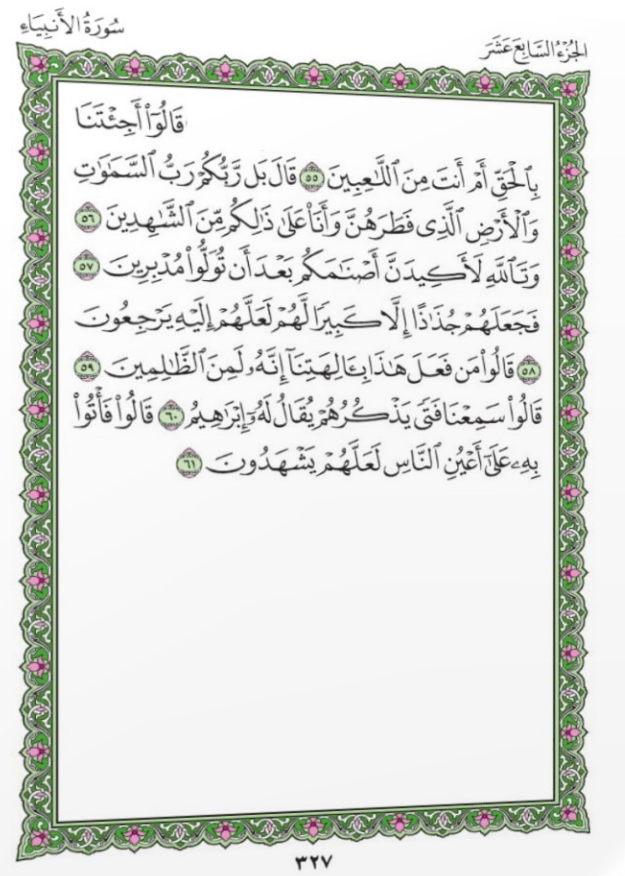 سُورَةُ الأَنبِيَاءِ
الجُزْءُ السَّابِعَ عَشَرَ
قَالُوٓا۟ أَجِئْتَنَا
بِٱلْحَقِّ أَمْ أَنتَ مِنَ ٱللَّـٰعِبِينَ ٥٥ قَالَ بَل رَّبُّكُمْ رَبُّ ٱلسَّمَـٰوَٰتِ
وَٱلْأَرْضِ ٱلَّذِى فَطَرَهُنَّ وَأَنَا۠ عَلَىٰ ذَٰلِكُم مِّنَ ٱلشَّـٰهِدِينَ ٥٦
وَتَٱللَّهِ لَأَكِيدَنَّ أَصْنَـٰمَكُم بَعْدَ أَن تُوَلُّوا۟ مُدْبِرِينَ ٥٧
فَجَعَلَهُمْ جُذَٰذًا إِلَّا كَبِيرًا لَّهُمْ لَعَلَّهُمْ إِلَيْهِ يَرْجِعُونَ
٥٨ قَالُوا۟ مَن فَعَلَ هَـٰذَا بِـَٔالِهَتِنَآ إِنَّهُۥ لَمِنَ ٱلظَّـٰلِمِينَ ٥٩
قَالُوا۟ سَمِعْنَا فَتًى يَذْكُرُهُمْ يُقَالُ لَهُۥٓ إِبْرَٰهِيمُ ٦٠ قَالُوا۟ فَأْتُوا۟
بِهِۦ عَلَىٰٓ أَعْيُنِ ٱلنَّاسِ لَعَلَّهُمْ يَشْهَدُونَ ٦١
٣٢٧